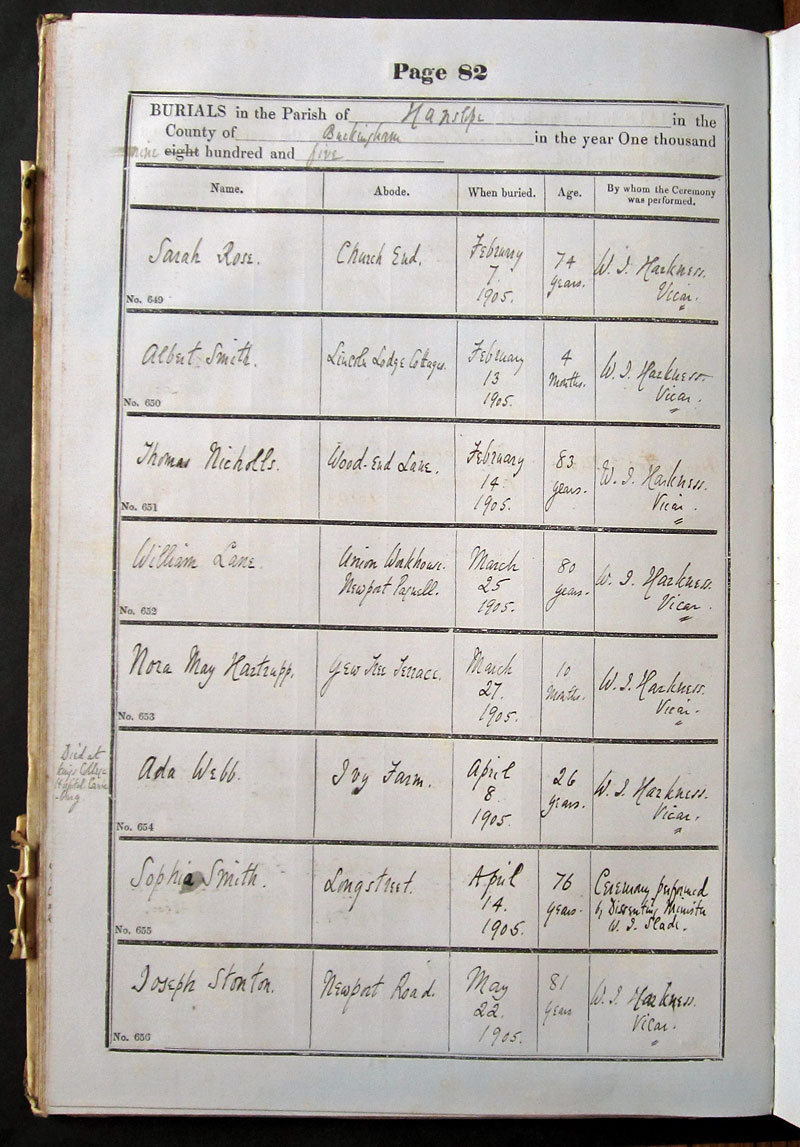 Page 82
BURIALS in the Parish of Hanslope in the
County of Buckingham in the year One thousand
nine eight hundred and five
Name. Abode. When buried. Age. By whom the Ceremony was performed.
Sarah Rose. Church End. February 7 1905. 74 years. W. J. Harkness. Vicar.
No. 649
Albert Smith. Lincoln Lodge Cottages. February 13 1905. 4 Months. W. J. Harkness. Vicar.
No. 650
Thomas Nicholls. Wood-End Lane. February 14 1905. 83 years. W. J. Harkness. Vicar.
No. 651
William Lane. Union Workhouse. Newport Pagnell. March 25 1905. 80 years. W. J. Harkness. Vicar.
No. 652
Nora May Hartrupp. Yew Tree Terrace. March 27. 1905. 10 Months. W. J. Harkness. Vicar.
No. 653
Died at
King's College
Hospital
Ada Webb. Ivy Farm. April 8 1905. 26 years. W. J. Harkness. Vicar.
No. 654
Sophia Smith. Longstreet. April 14. 1905. 76 years. Ceremony performed by Dissenting Minister W. J. Slade.
No. 655
Joseph Stonton. Newport Road. May 22. 1905. 81 years W. J. Harkness. Vicar.
No. 656